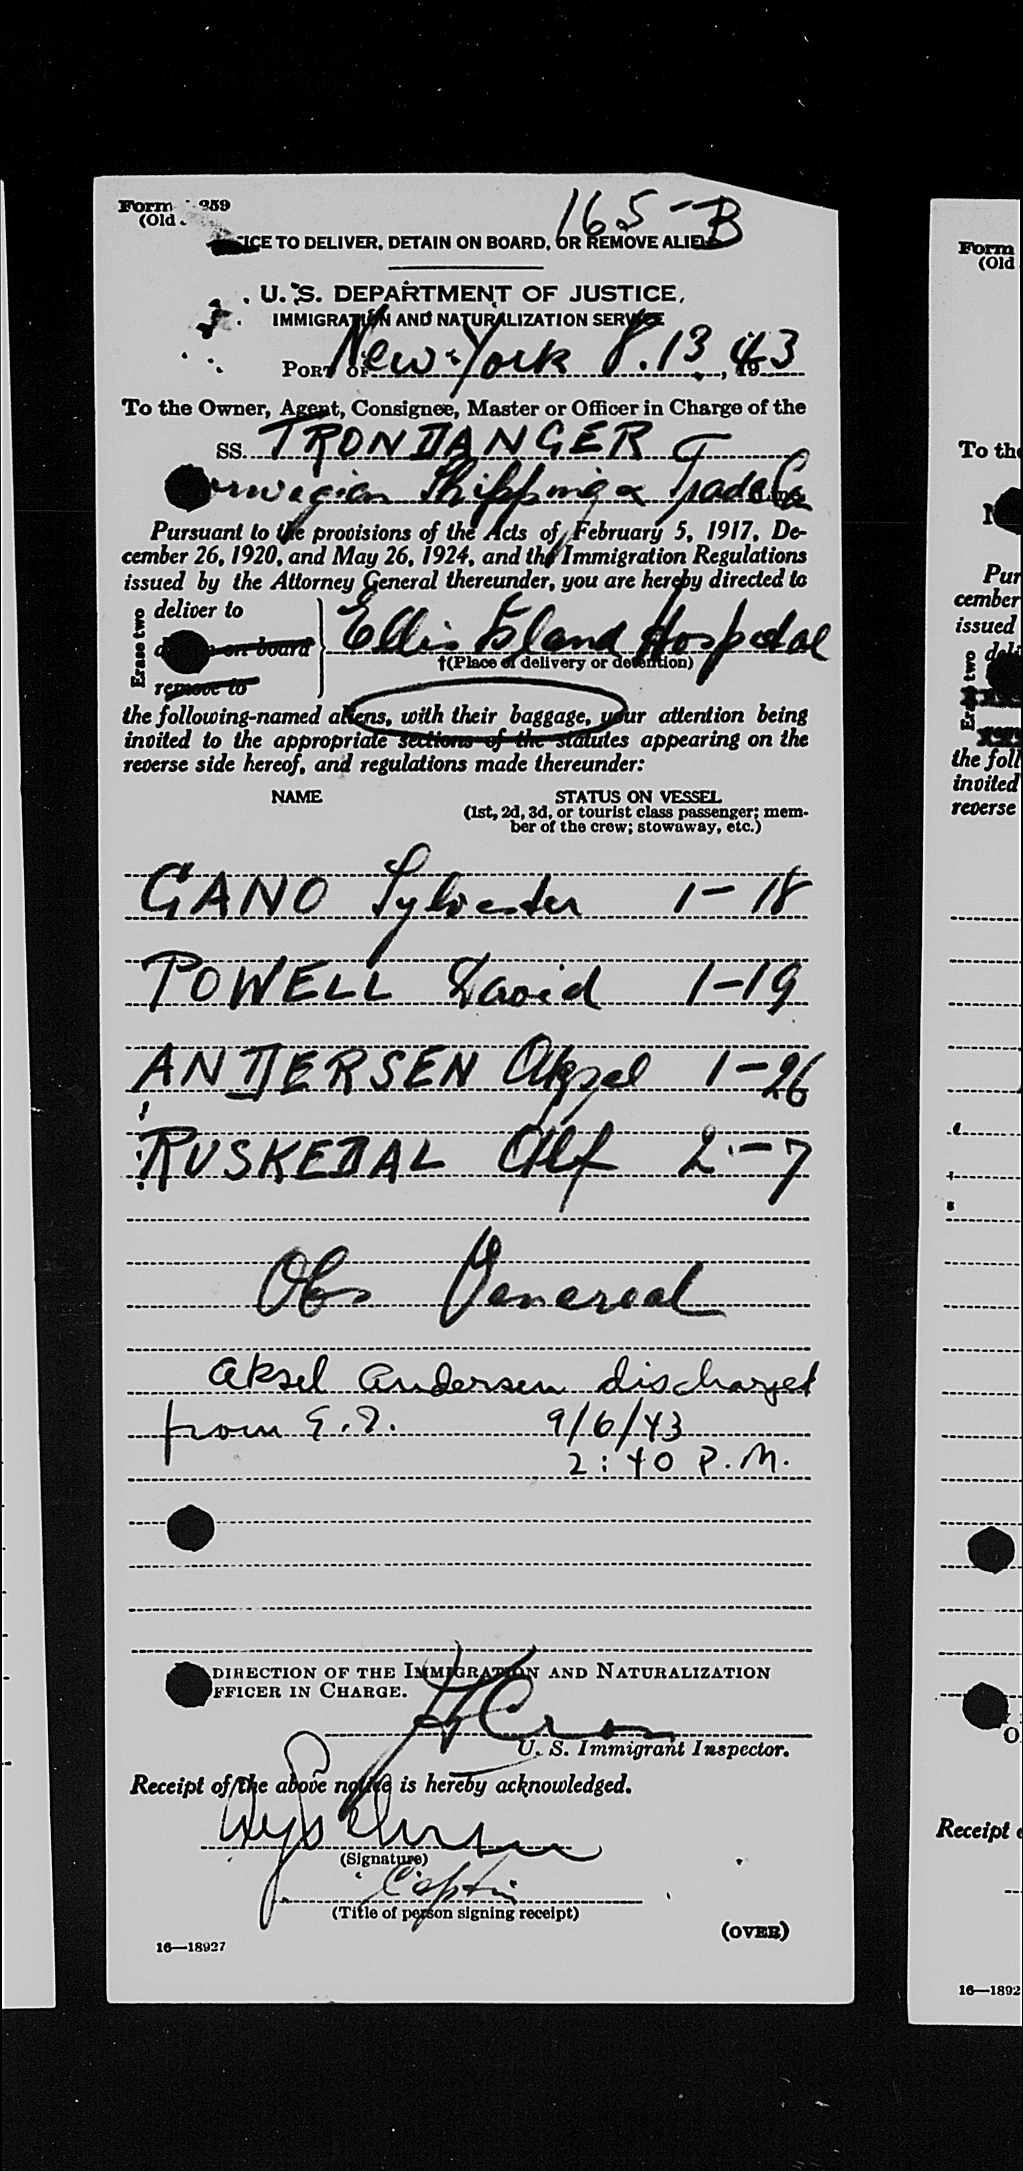 Form 259
(Old
165-B
ICE TO DELIVER, DETAIN ON BOARD, OR REMOVE ALIEN
U. S. DEPARTMENT OF JUSTICE,
IMMIGRATION AND NATURALIZATION SERVICE
PORT OF New York 8.13, 1943
To the Owner, Agent, Consignee, Master or Officer in Charge of the
SS. TRONDANGER
Norwegian Shipping & Trade Line
Pursuant to the provisions of the Acts of February 5, 1917, De-
cember 26, 1920, and May 26, 1924, and the Immigration Regulations
issued by the Attorney General thereunder, you are hereby directed to
Erase two
deliver to
on board
remove to
Ellis Island Hospital
†(Place of delivery or detention)
the following-named aliens, with their baggage, your attention being
invited to the appropriate sections of the statutes appearing on the
reverse side hereof, and regulations made thereunder:
NAME STATUS ON VESSEL
(1st, 2d, 3d, or tourist class passenger; mem-
ber of the crew; stowaway, etc.)
GANO Sylvester 1-18
POWELL David 1-19
ANDERSEN Aksel 1-26
RUSKEDAL Alf 2-7
Obs Venereal
Aksel Andersen discharged
from E.I. 9/6/43
2:40 P.M.
DIRECTION OF THE IMMIGRATION AND NATURALIZATION
FFICER IN CHARGE.
U. S. Immigrant Inspector.
Receipt of the above notice is hereby acknowledged.
(Signature)
Captin
(Title of person signing receipt)
(OVER)
16—18927
Form
(Old
To the
N
Pur
cember
issued
deli
Erase two
the foll
invited
reverse
O
Receipt o
16—1892